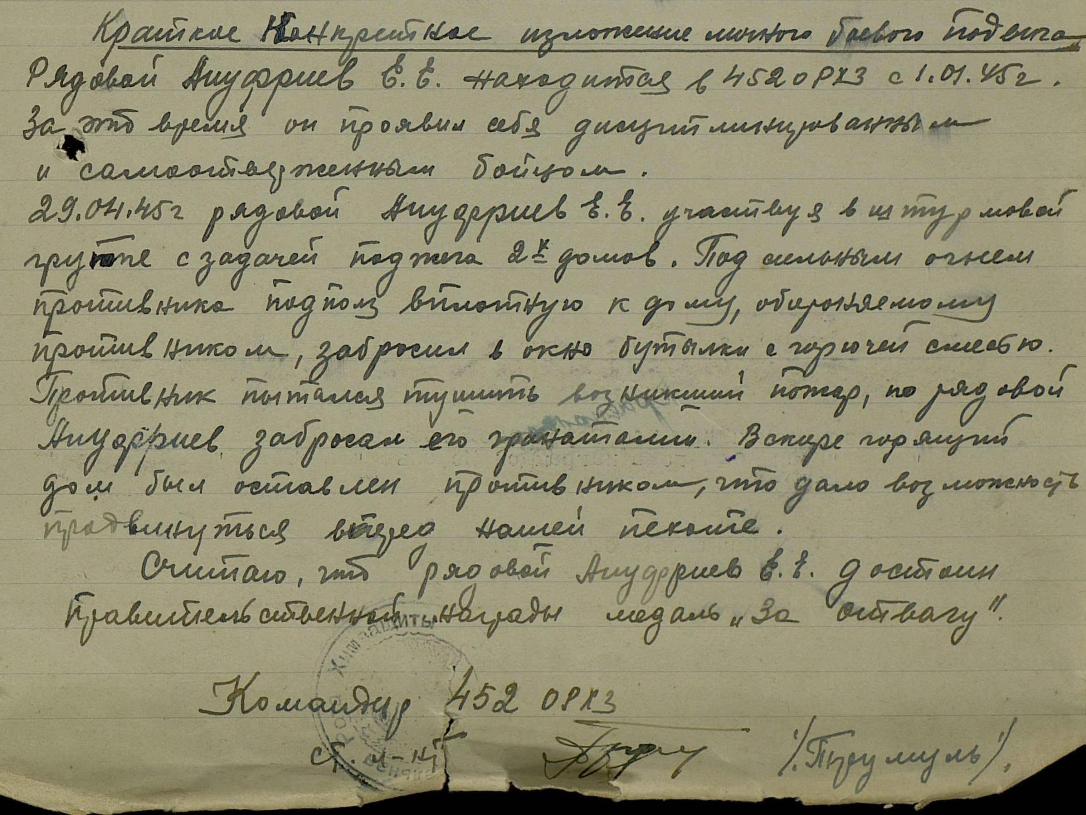 Краткое конкретное изложение личного боевого подвига
Рядовой Ануфриев Е.Е. находится в 452 ОРХЗ с 1.01.45г.
За это время он проявил себя дисциплинированным
и самоотверженным бойцом.
29.04.45г рядовой Ануфриев Е.Е. участвуя в штурмовой
группе с задачей поджега 2х домов. Под сильным огнем
противника подполз вплотную к дому, обороняемому
противником, забросил в окно бутылки с горючей смесью.
Противник пытался тушить возникший пожар, но рядовой
Ануфриев забросал его гранатами. Вскоре горящий
дом был оставлен противником, что дало возможность
продвинуться вперед нашей пехоте.
Считаю, что рядовой Ануфриев Е.Е. достоин
правительственной награды медаль „За отвагу".
Командир 452 ОРХЗ
ст. л-нт /Прумуль/.
Рота химзащиты